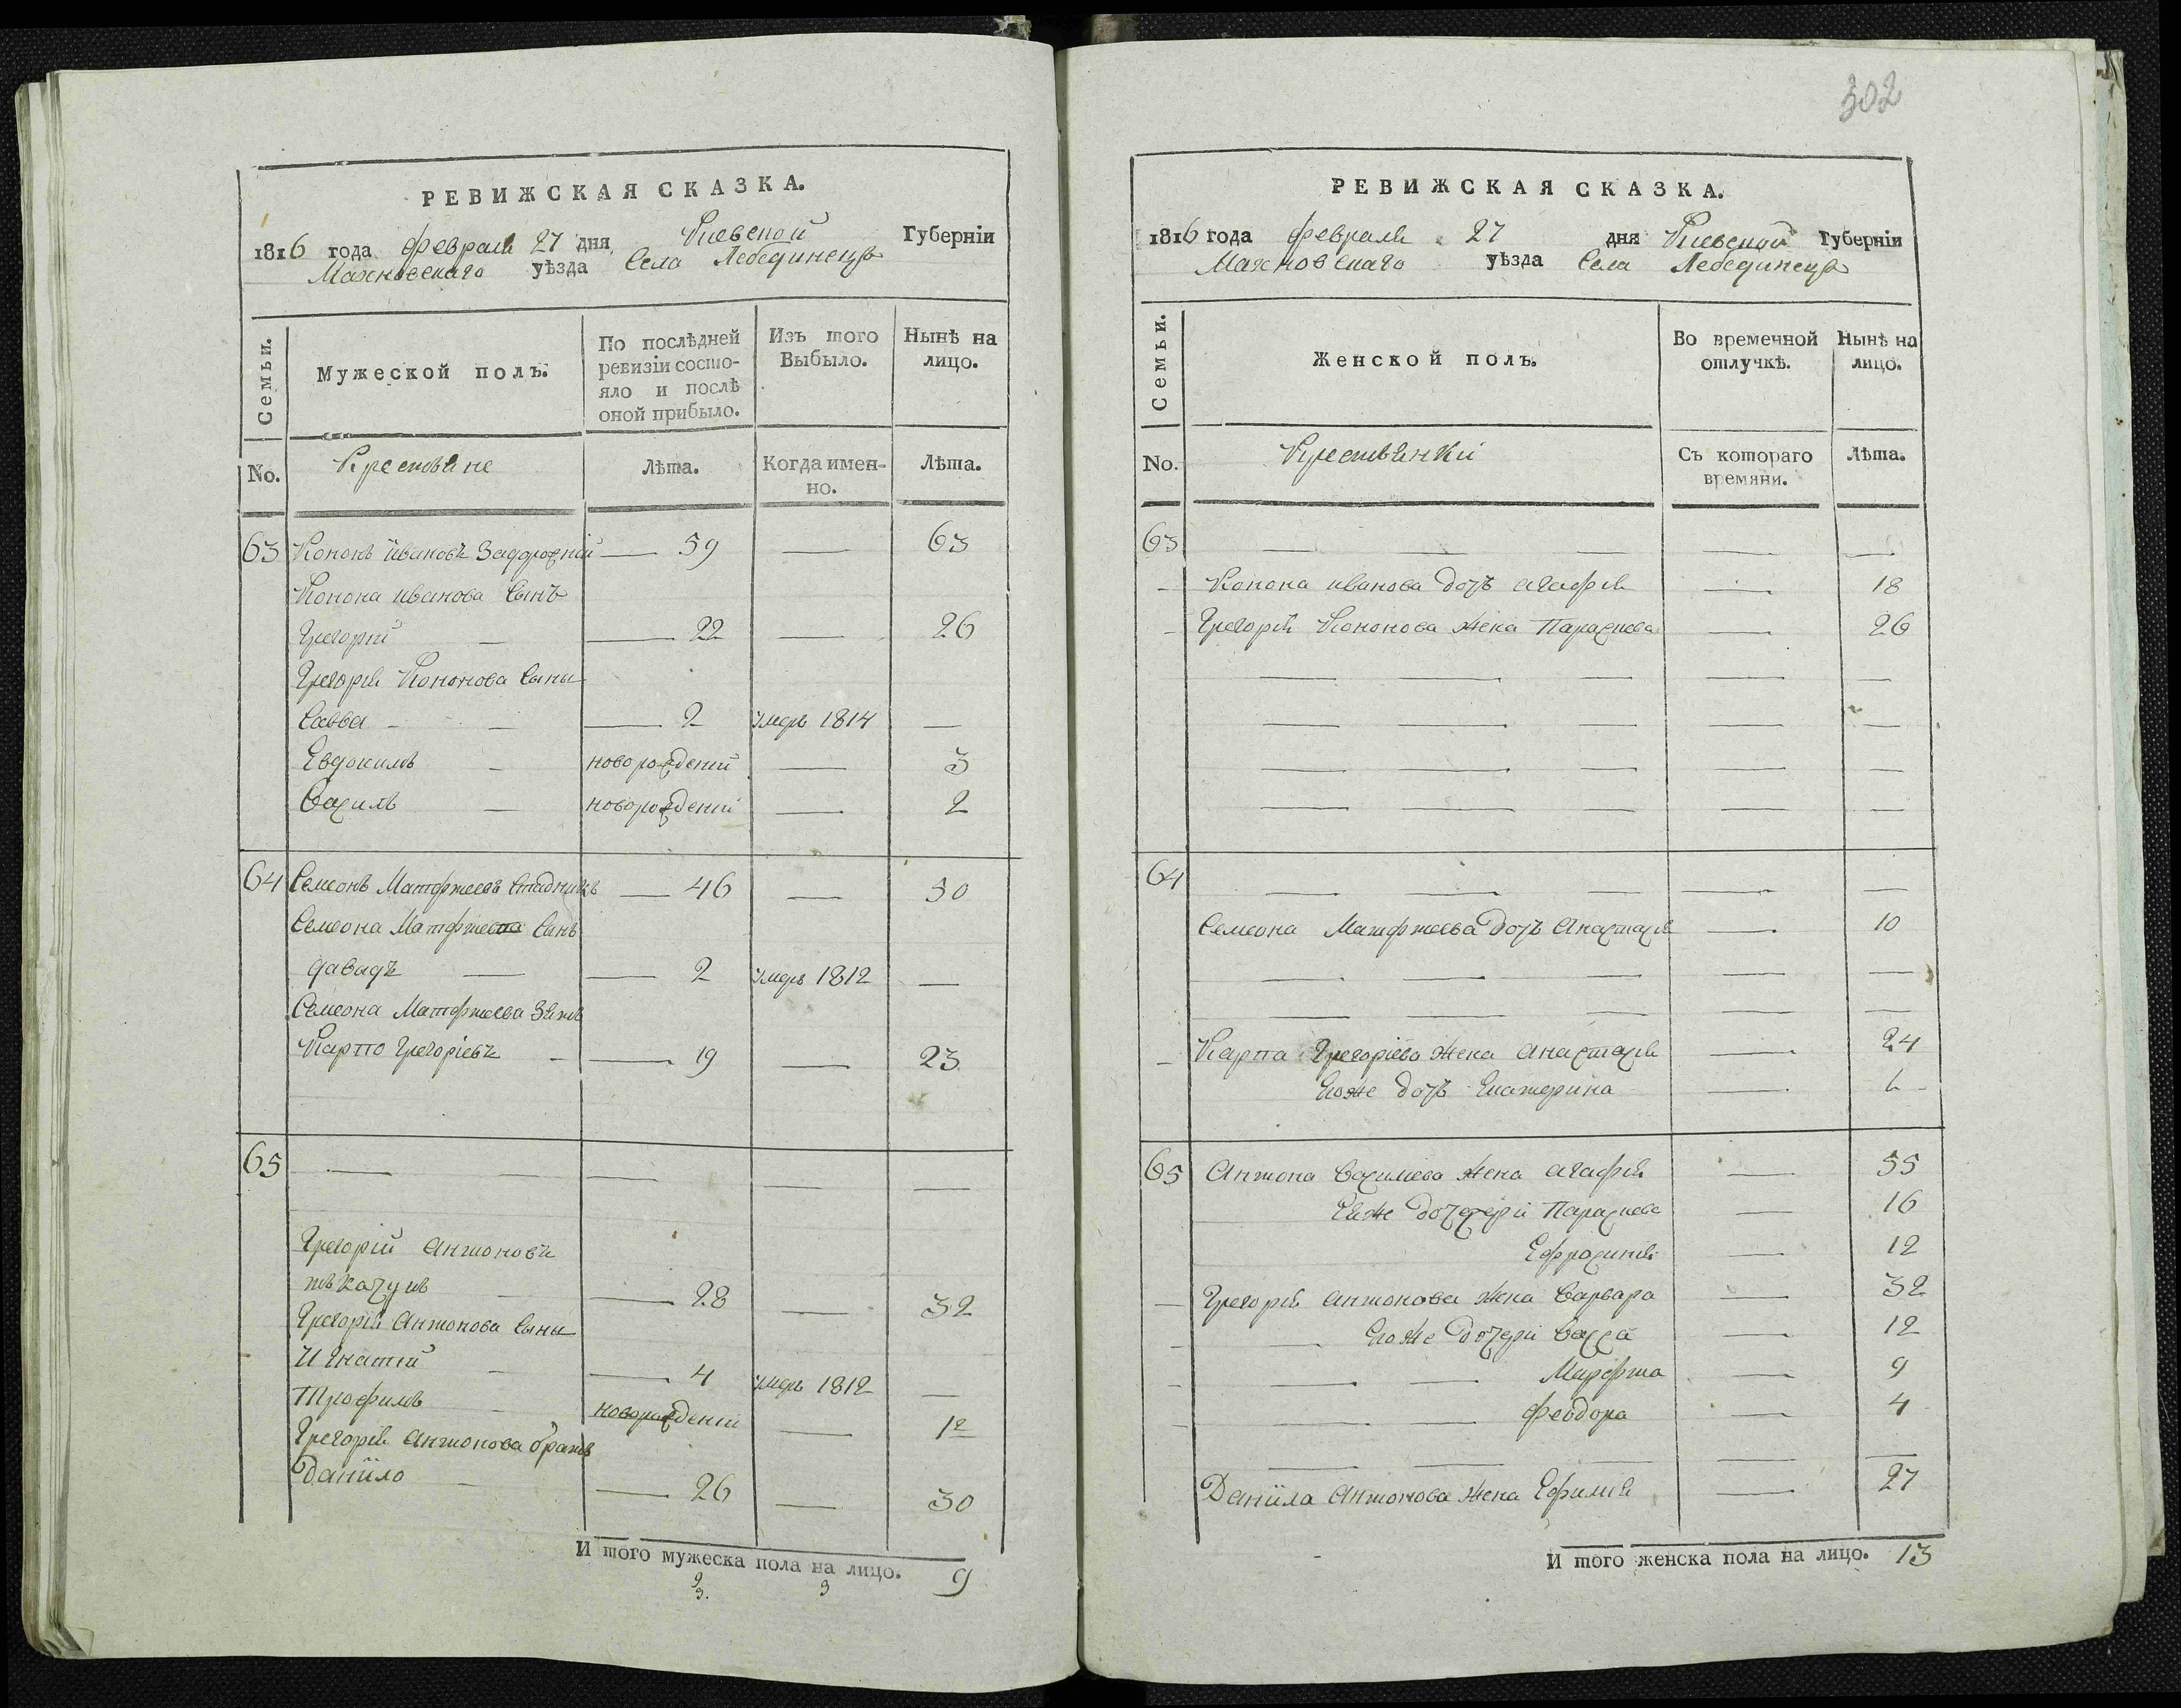 РЕВИЖСКАЯ СКАЗКА.
1816 года февраля 27 дня Киевской Губерніи
Махновскаго уѣзда Села Лебединецъ
Семьи. Мужеской полъ. По послѣдней ревизіи состояло и послѣ оной прибыло. Изъ того Выбыло. Нынѣ на лицо.
No. Крестьяне Лѣта. Когда именно. Лѣта.
63 Кононъ Ивановъ — 59 — 63
Конона Иванова Сынъ
Григорій — — 22 — 26
Григорія Кононова Сыны
Савва — — — 2 умеръ 1814 —
Евдокимъ — новорожденій — 3
Василь — новорожденій — 2
64 Семіонъ Матфіевъ Стадникъ — 46 — 50
Семіона Матфіева Синъ
давидъ — — 2 умеръ 1812 —
Семіона Матфіева Зять
Карпо Григоріевъ — — 19 — 23
65 — — — — —
Григорій Антоновъ
ткачукъ — — 28 — 32
Григорія Антонова Сыны
Игнатій — — 4 умеръ 1812 —
Трофимъ — новорожденій — 1½
Григорія Антонова братъ
Даніило — — 26 — 30
И того мужеска пола на лицо. 9
302
РЕВИЖСКАЯ СКАЗКА.
1816 года февраля 27 дня Киевской Губерніи
Махновскаго уѣзда Села Лебединецъ
Семьи. Женской полъ. Во временной отлучкѣ. Нынѣ на лицо.
No. Крестьянки Съ котораго времяни. Лѣта.
63 — — — — —
— Конона иванова дочь агафія — 18
— Григорія Кононова жена Параскева — 26
— — — — —
— — — — —
— — — — —
— — — — —
64 — — — — —
Семіона Матфіева дочь Анастасія — 10
— — — — —
— — — — —
— Карпа Григоріева жена анастасія — 24
Егоже дочь Екатерина —
65 Антона Василиева жена агафія — 55
Еяже дочерѣи Параскева — 16
Ефросинія — 12
— Григорія антонова жена Варвара — 32
— — Егоже дочерѣи Васса — 12
— — — Марфта — 9
— — — феодора — 4
— — — — —
Даніила антонова жена Ефимія — 27
И того женска пола на лицо. 13